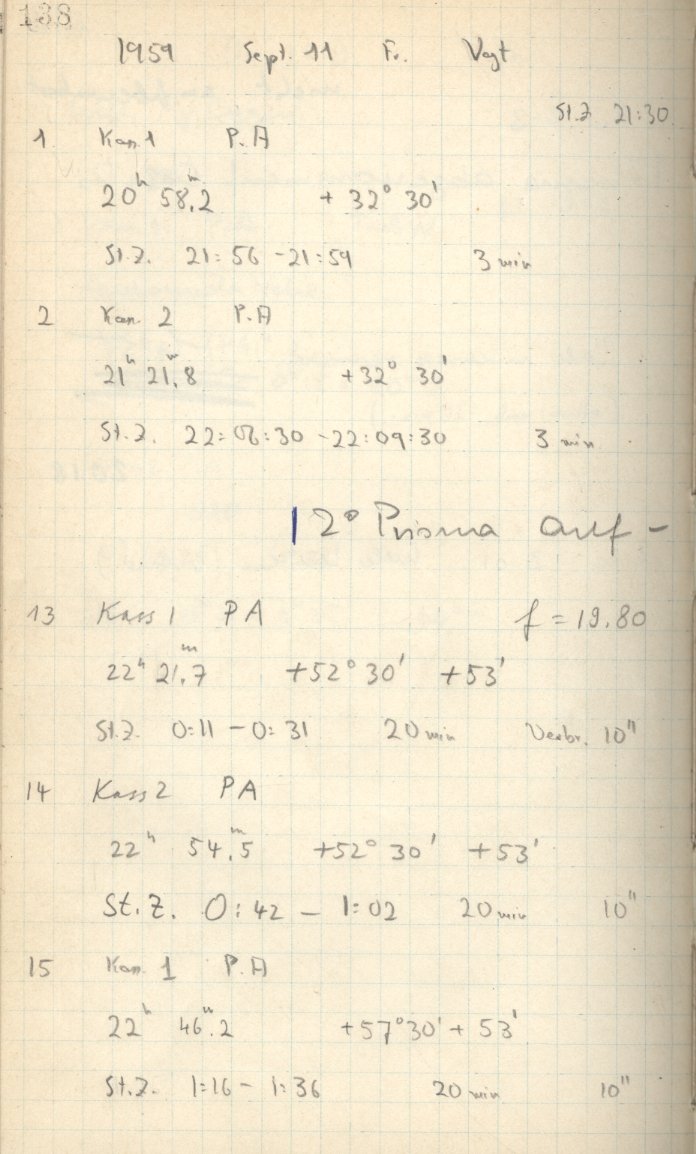 138
1959 Sept. 11 Fr. Vogt
St.Z 21:30
1 Kass.1 P.A
20ʰ 58ᵐ.2 + 32° 30'
St.Z. 21:56 - 21:59 3 min
2 Kass. 2 P.A
21ʰ 21ᵐ.8 +32° 30'
St.Z. 22:06:30 - 22:09:30 3 min
2° Prisma auf -
13 Kass 1 PA f = 19.80
22ʰ 21ᵐ.7 +52° 30' +53'
St.Z. 0:11 - 0:31 20 min Verbr. 10"
14 Kass 2 PA
22ʰ 54ᵐ.5 +52° 30' +53'
St.Z. 0:42 - 1:02 20 min 10"
15 Kass. 1 P.A
22ʰ 46ᵐ.2 +57° 30' + 53'
St.Z. 1:16 - 1:36 20 min 10"